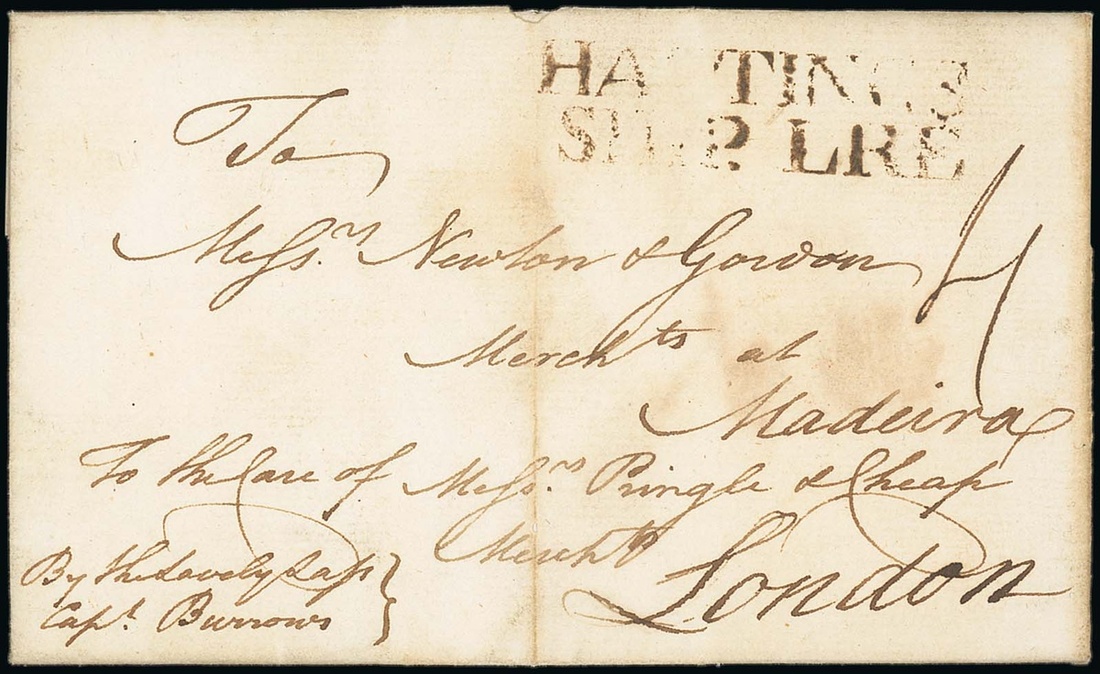 HASTINGS
SHIP LRE
To
Messrs Newton & Gordon
Merchts at
Madeira
To the Care of Messrs Pringle & Cheap
Merchts
London
By the Lovely Lass
Capt. Burrows
4